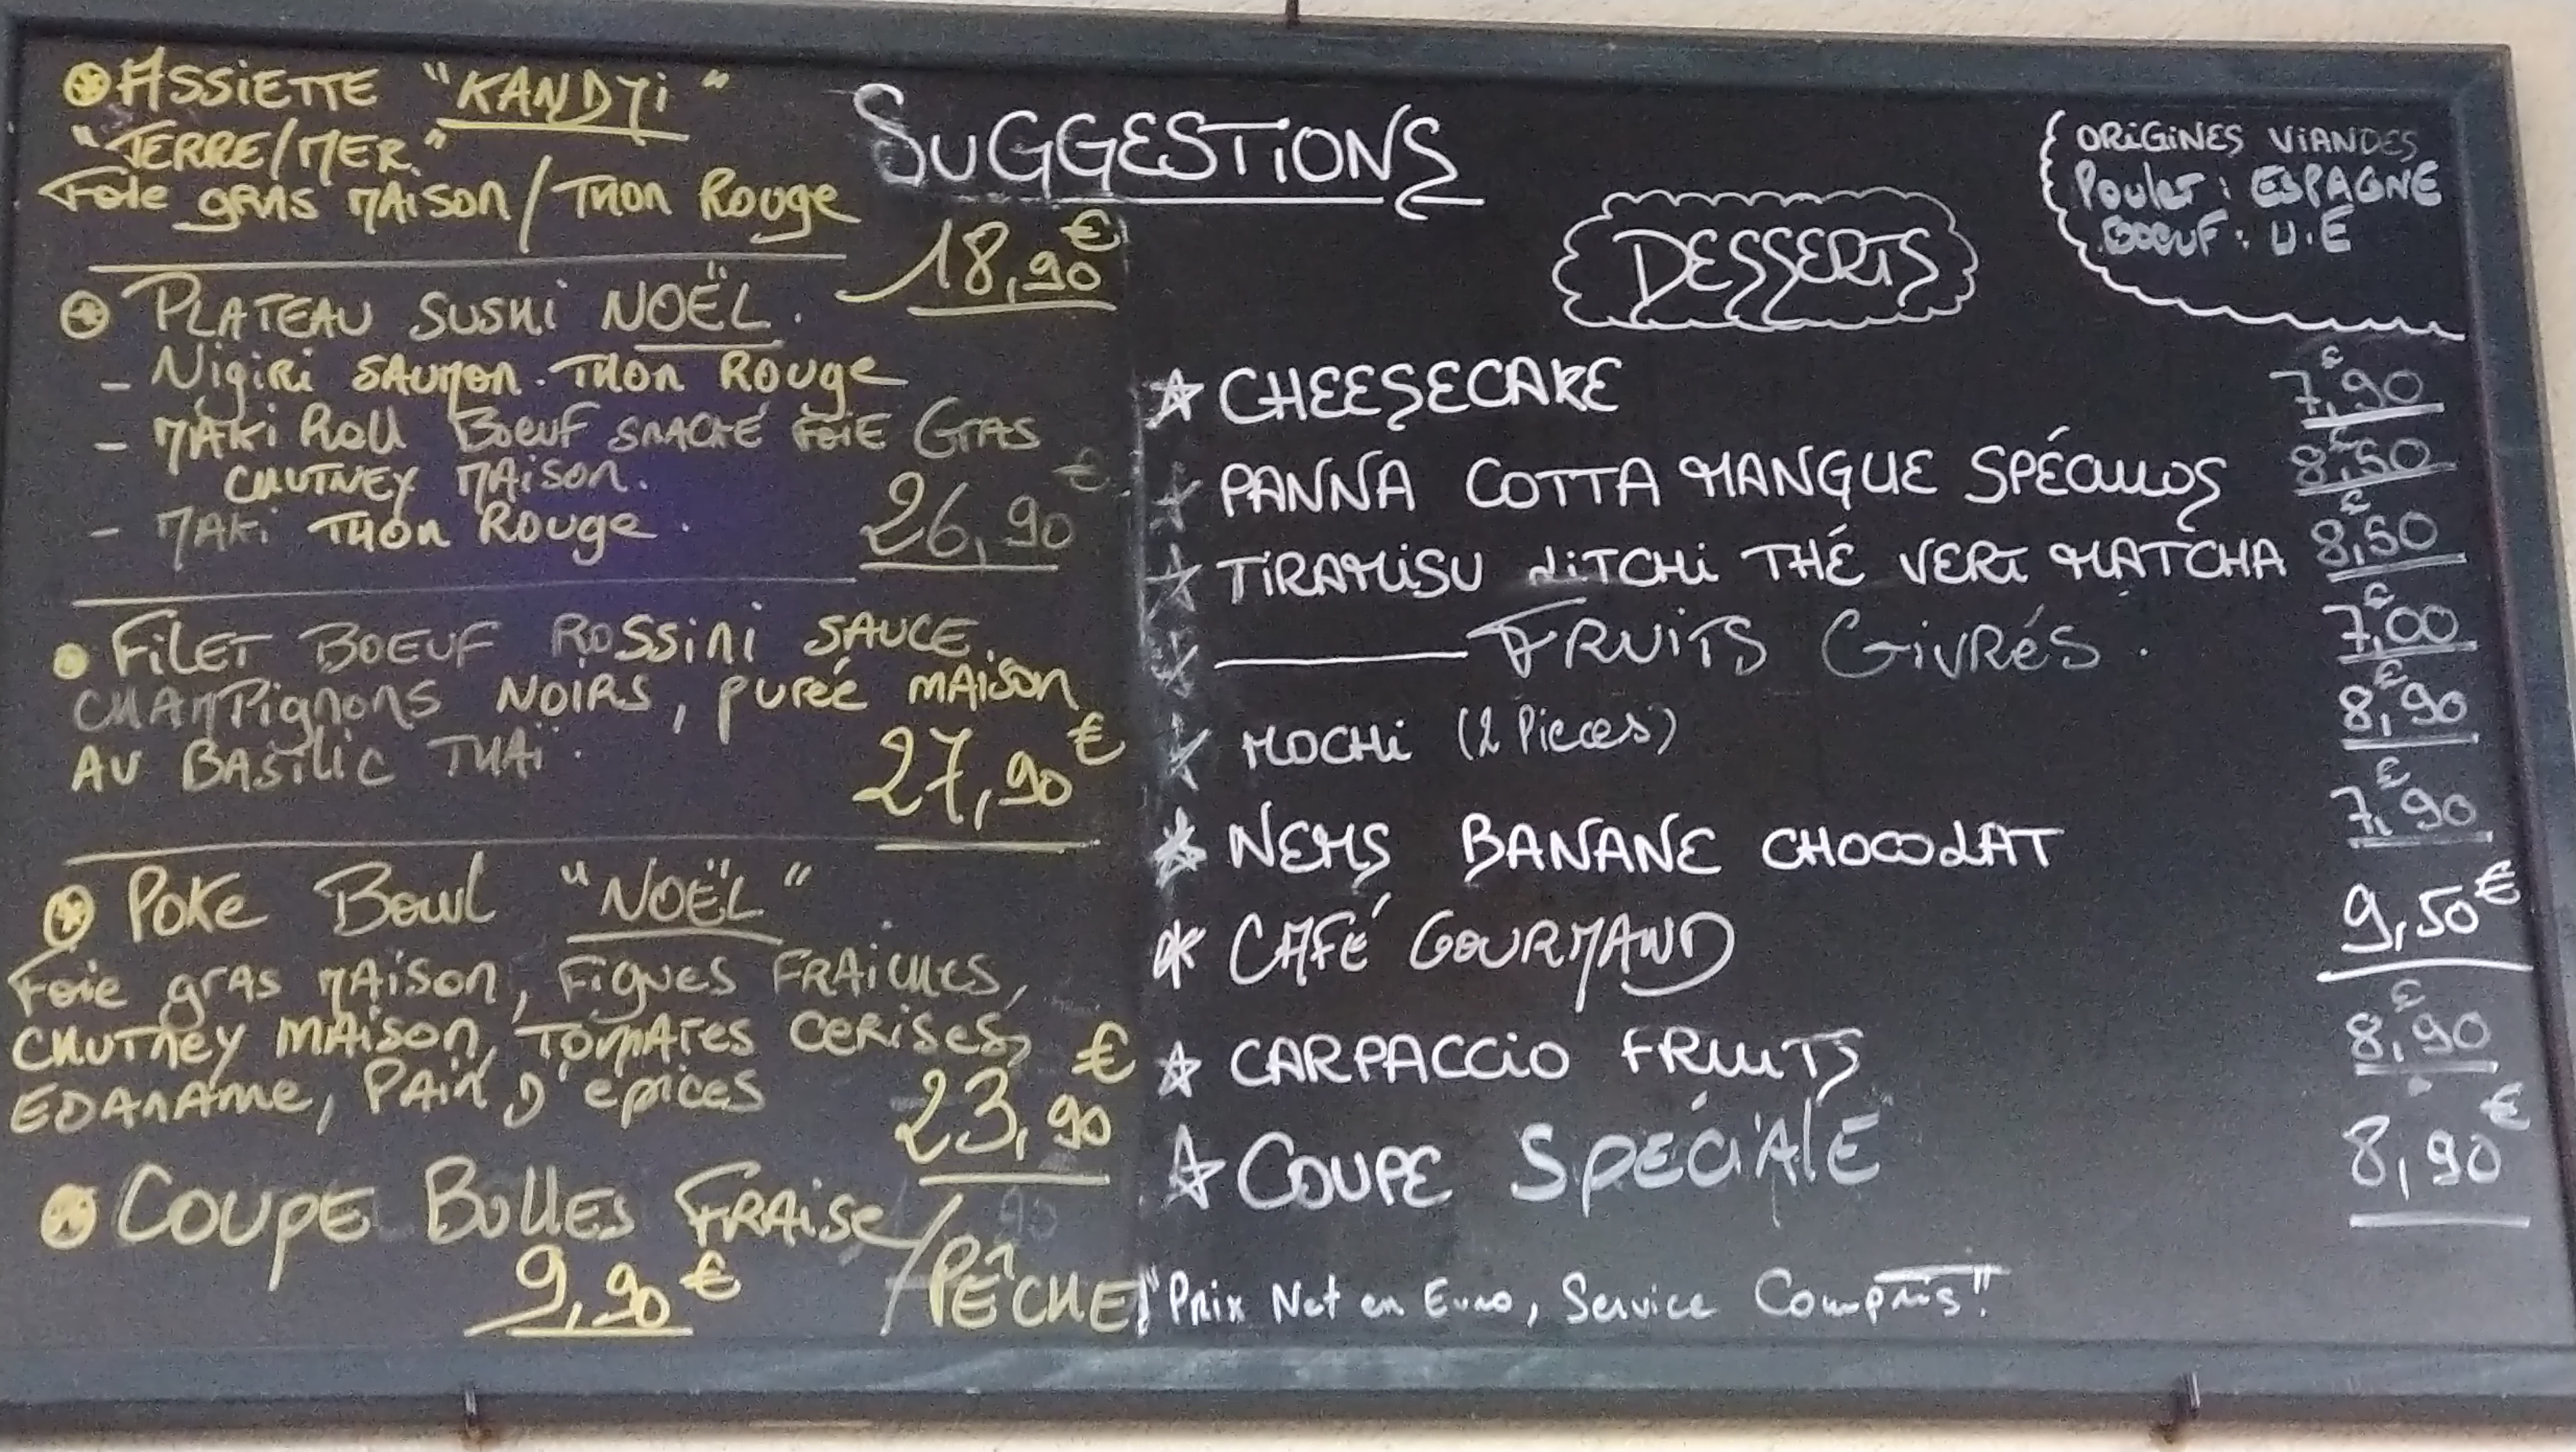 ASSIETTE "KANDYi"
"TERRE/MER."
Foie gRAS MAison/Thon Rouge
18,90€
PLATEAU SUSHi NOËL.
- Nigiri SAUMON. THON ROUge
- MAKi Roll Boeuf SNACKÉ FOIE GRAS
CHUTNEY MAison.
26,90€
- MAKi THON ROUge.
FiLET BOEUF ROSSini SAUCE
CHAMPignons NOIRS, purée MAISON
AU BASiLiC THAÏ.
27,90€
POKe Bowl "NOËL"
Foie gRAS MAison, Figues FRAiCHES,
CHUTNEY MAISON, TOMATES CERISES,
EDANAME, PAIN D'épices
23,90€
COUPE BULLES FRAise/PÊCHE
9,90€
SUGGESTIONS
ORiGiNES ViANDES
Poulet : ESPAGNE
BOEUF : U.E
DESSERTS
CHEESECAKE 7,90€
PANNA COTTA MANGUE SPÉCULOS 8,50€
TiRAMiSU LiTCHi THÉ VERT MATCHA 8,50€
FRUiTS GiVRéS. 7,00€
MOCHi (2 Pieces) 8,90€
NEMS BANANE CHOCOLAT 7,90€
CAFÉ GOURMAND 9,50€
CARPACCiO FRUiTS 8,90€
COUPE SPÉCiALE 8,90€
"Prix Net en Euro, Service Compris"